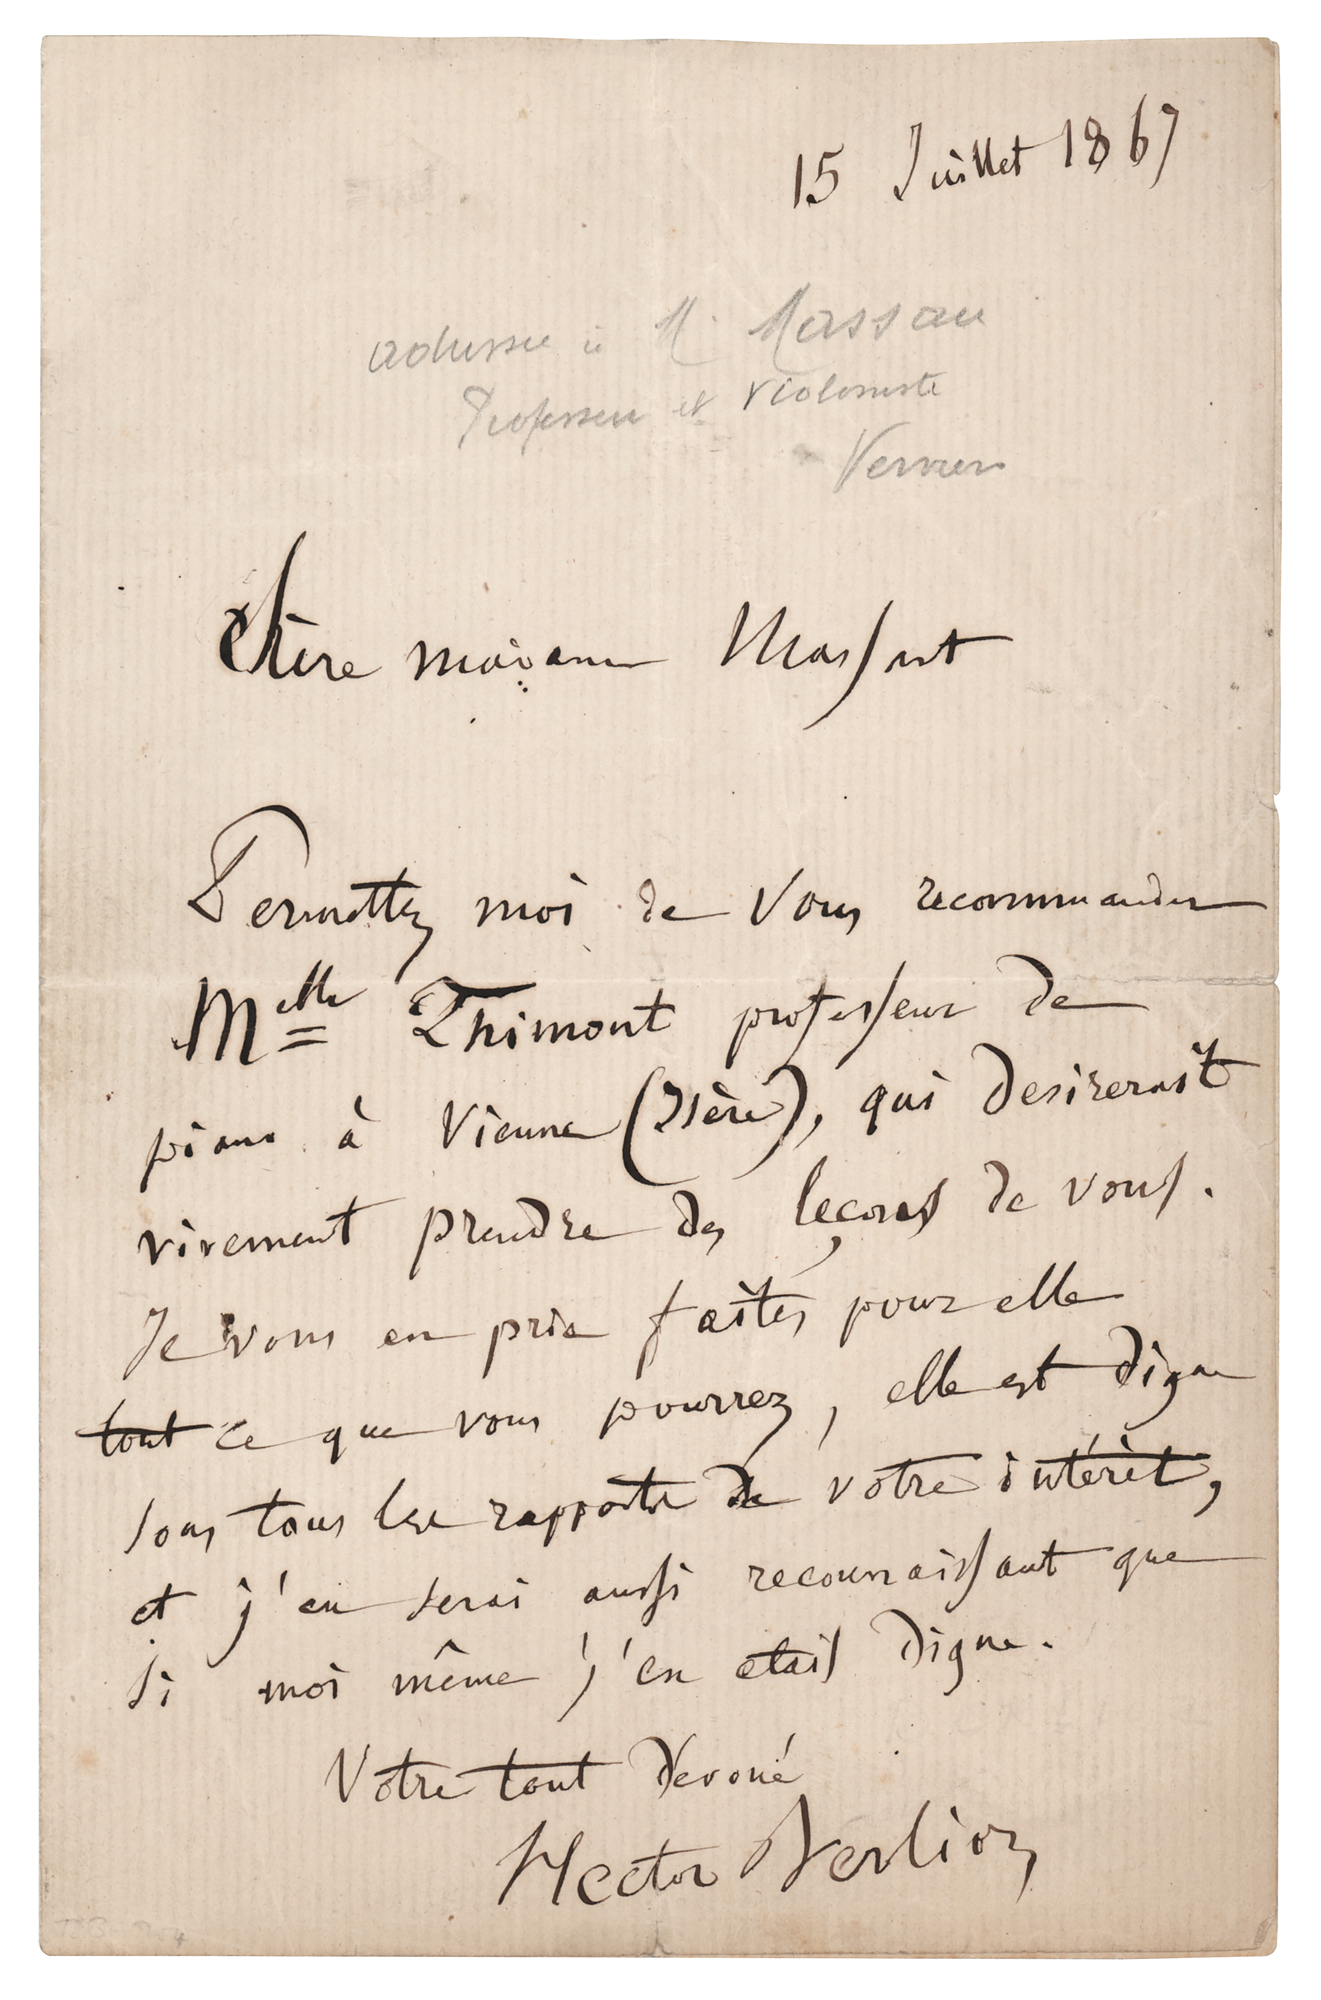 15 Juillet 1867
adressée à M. Massau
Professeur et violoniste
Verviers
Chère madame Massart
Permettez moi de vous recommander
Melle Thimont professeur de
piano à Vienne (Isère), qui desirerait
vivement prendre des leçons de vous.
Je vous en prie faites pour elle
tout ce que vous pourrez, elle est digne
sous tous les rapports de votre intérèt,
et j'en serai aussi reconnaissant que
si moi même j'en etais digne.
Votre tout dévoué
Hector Berlioz